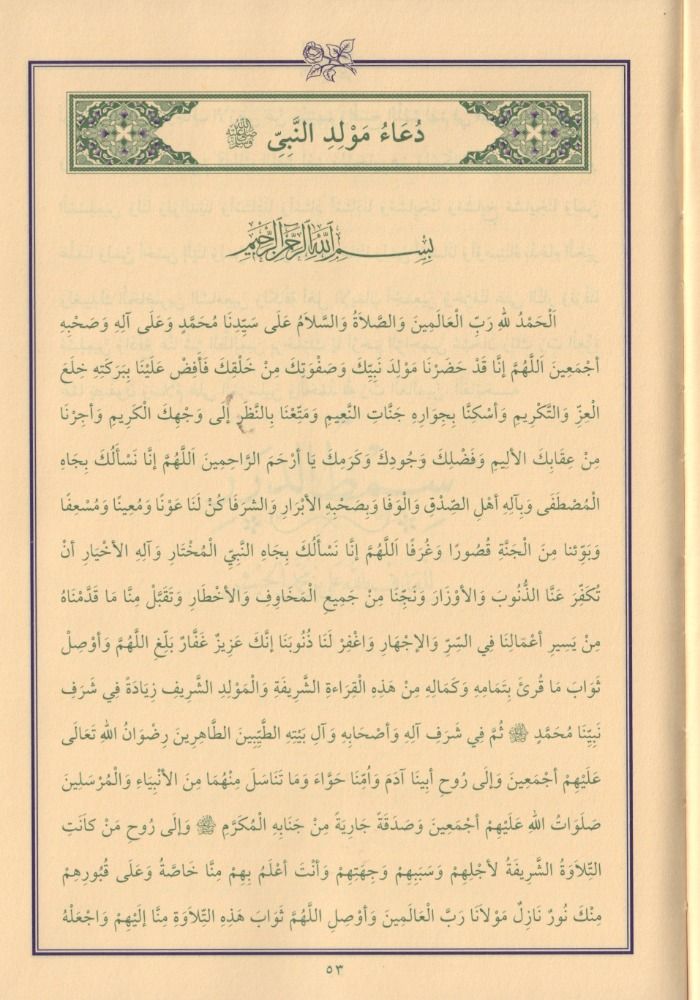 دُعَاءُ مَوْلِدِ النَّبِيِّ ﷺ
بِسْمِ اللهِ الرَّحْمٰنِ الرَّحِيمِ
اَلْحَمْدُ لِلهِ رَبِّ الْعَالَمِينَ وَالصَّلاَةُ وَالسَّلاَمُ عَلَى سَيِّدِنَا مُحَمَّدٍ وَعَلَى آلِهِ وَصَحْبِهِ
أجْمَعِينَ اَللَّهُمَّ إنَّا قَدْ حَضَرْنَا مَوْلِدَ نَبِيِّكَ وَصَفْوَتِكَ مِنْ خَلْقِكَ فَأَفِضْ عَلَيْنَا بِبَرَكَتِهِ خِلَعَ
الْعِزِّ وَالتَّكْرِيمِ وَأسْكِنَّا بِجِوَارِهِ جَنَّاتِ النَّعِيمِ وَمَتِّعْنَا بِالنَّظَرِ إلَى وَجْهِكَ الْكَرِيمِ وَأجِرْنَا
مِنْ عِقَابِكَ الألِيمِ وَفَضْلِكَ وَجُودِكَ وَكَرَمِكَ يَا أرْحَمَ الرَّاحِمِينَ اَللَّهُمَّ إنَّا نَسْألُكَ بِجَاهِ
الْمُصْطَفَى وَبِآلِهِ أهْلِ الصِّدْقِ وَالْوَفَا وَبِصَحْبِهِ الأبْرَارِ وَالشُرَفَا كُنْ لَنَا عَوْنًا وَمُعِينًا وَمُسْعِفًا
وَبَوِّئنا مِنَ الْجَنَّةِ قُصُورًا وَغُرَفًا اَللَّهُمَّ إنَّا نَسْألُكَ بِجَاهِ النَّبِيِّ الْمُخْتَارِ وَآلِهِ الأخْيَارِ أنْ
تُكَفِّرَ عَنَّا الذُّنُوبَ وَالأوْزَارَ وَنَجِّنَا مِنْ جَمِيعِ الْمَخَاوِفِ وَالأخْطَارِ وَتَقَبَّلْ مِنَّا مَا قَدَّمْنَاهُ
مِنْ يَسِيرِ أعْمَالِنَا فِي السِّرِّ وَالإجْهَارِ وَاغْفِرْ لَنَا ذُنُوبَنَا إنَّكَ عَزِيزٌ غَفَّارٌ بَلِّغِ اللَّهُمَّ وَأوْصِلْ
ثَوَابَ مَا قُرِئَ بِتَمَامِهِ وَكَمَالِهِ مِنْ هَذِهِ الْقِرَاءةِ الشَّرِيفَةِ وَالْمَوْلِدِ الشَّرِيفِ زِيَادَةً فِي شَرَفِ
نَبِيِّنَا مُحَمَّدٍ ﷺ ثُمَّ فِي شَرَفِ آلِهِ وَأصْحَابِهِ وَآلِ بَيْتِهِ الطَّيِّبِينَ الطَّاهِرِينَ رِضْوَانُ اللهِ تَعَالَى
عَلَيْهِمْ أجْمَعِينَ وَإلَى رُوحِ أبِينَا آدَمَ وَأُمِّنَا حَوَّاءَ وَمَا تَنَاسَلَ مِنْهُمَا مِنَ الأنْبِيَاءِ وَالْمُرْسَلِينَ
صَلَوَاتُ اللهِ عَلَيْهِمْ أجْمَعِينَ وَصَدَقَةً جَارِيَةً مِنْ جَنَابِهِ الْمُكَرَّمِ ﷺ وَإلَى رُوحِ مَنْ كاَنَتِ
التِّلاَوَةُ الشَّرِيفَةُ لأجْلِهِمْ وَسَبَبِهِمْ وَجِهَتِهِمْ وَأنْتَ أعْلَمُ بِهِمْ مِنَّا خَاصَّةً وَعَلَى قُبُورِهِمْ
مِنْكَ نُورٌ نَازِلٌ مَوْلاَنَا رَبَّ الْعَالَمِينَ وَأوْصِلِ اللَّهُمَّ ثَوَابَ هَذِهِ التِّلاَوَةِ مِنَّا إلَيْهِمْ وَاجْعَلْهُ
٥٣